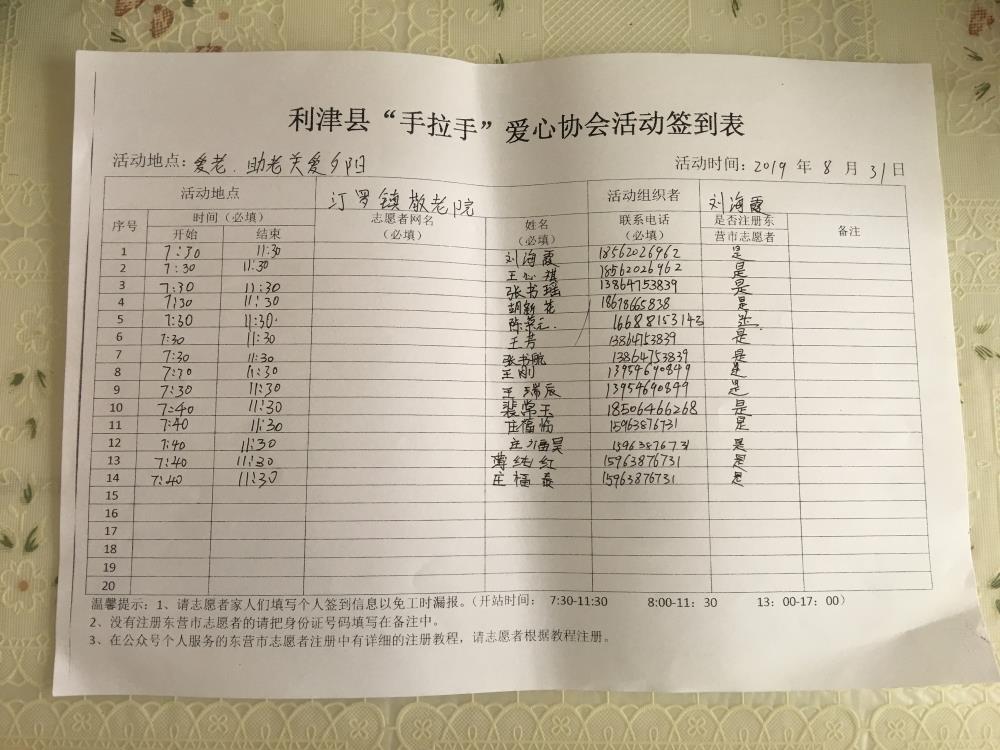 利津县“手拉手”爱心协会活动签到表
活动地点：爱老.助老关爱夕阳 活动时间：2019 年 8 月 31 日
活动地点 汀罗镇敬老院 活动组织者 刘海霞
序号 时间（必填） 志愿者网名（必填） 姓名（必填） 联系电话（必填） 是否注册东营市志愿者 备注
开始 结束
1 7:30 11:30 刘海霞 18562026962 是
2 7:30 11:30 王心祺 18562026962 是
3 7:30 11:30 张书瑶 13864753839 是
4 7:30 11:30 胡新花 18678665838 是
5 7:30 11:30. 陈荣元. 16688153143 是.
6 7:30 11:30 王芳 13864753839 是
7 7:30 11:30 张书航 13864753839 是
8 7:30 11:30 王刚 13954690849 是
9 7:30 11:30 王瑞辰 13954690849 是
10 7:40 11:30 裴常玉 18506466268 是
11 7:40 11:30 庄福临 15963876731 是
12 7:40 11:30 庄福昊 15963876731 是
13 7:40 11:30 薄纯红 15963876731 是
14 7:40 11:30 庄福泰 15963876731 是
15
16
17
18
19
20
温馨提示：1、请志愿者家人们填写个人签到信息以免工时漏报。（开站时间： 7:30-11:30 8:00-11：30 13：00-17：00）
2、没有注册东营市志愿者的请把身份证号码填写在备注中。
3、在公众号个人服务的东营市志愿者注册中有详细的注册教程，请志愿者根据教程注册。